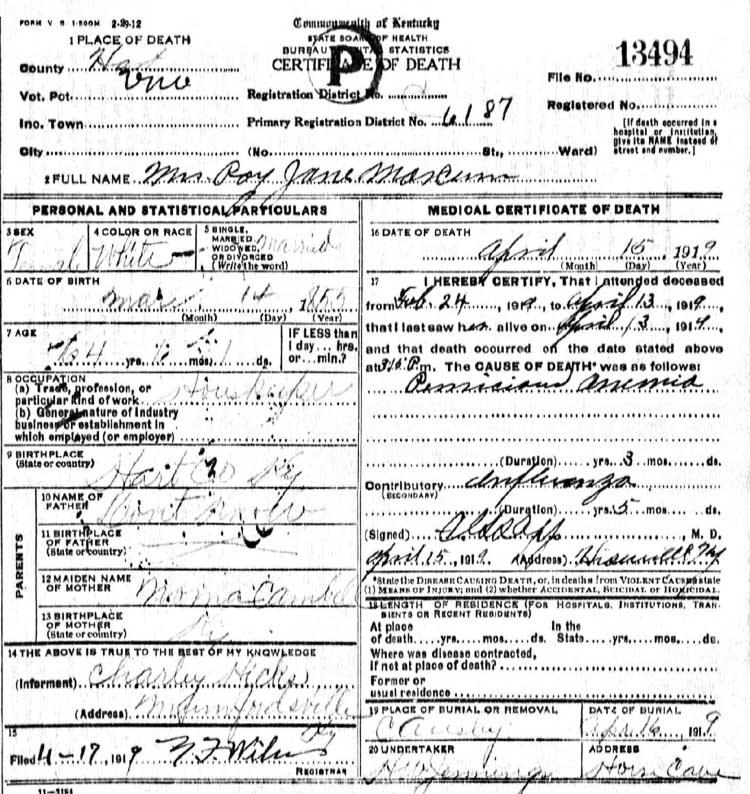 FORM V S 1-500M 2-29-12
Commonwealth of Kentucky
STATE BOARD OF HEALTH
BUREAU VITAL STATISTICS
CERTIFICATE OF DEATH
P
1 PLACE OF DEATH
County
Vot. Pct.
Ino. Town
City
Registration District No.
Primary Registration District No. 6187
(No. St., Ward)
13494
File No.
Registered No.
[If death occurred in a
hospital or institution,
give its NAME instead of
street and number.]
2 FULL NAME Mrs. Roy Jane
PERSONAL AND STATISTICAL PARTICULARS
3 SEX
Female
4 COLOR OR RACE
White
5 SINGLE,
MARRIED,
WIDOWED,
OR DIVORCED
(Write the word)
Married
6 DATE OF BIRTH
Mar 14, 1855
(Month) (Day) (Year)
7 AGE
64 yrs. mos. 1 ds.
IF LESS than
1 day... hrs.
or... min.?
8 OCCUPATION
(a) Trade, profession, or
particular kind of work Housekeeper
(b) General nature of industry
business or establishment in
which employed (or employer)
9 BIRTHPLACE
(State or country)
Hart Co Ky
PARENTS
10 NAME OF
FATHER
Dont know
11 BIRTHPLACE
OF FATHER
(State or country)
12 MAIDEN NAME
OF MOTHER
13 BIRTHPLACE
OF MOTHER
(State or country)
Ky
14 THE ABOVE IS TRUE TO THE BEST OF MY KNOWLEDGE
(Informant) Charley Hicks
(Address) Munfordsville
Ky
15
Filed 4-17, 1919
REGISTRAR
11-3184
MEDICAL CERTIFICATE OF DEATH
16 DATE OF DEATH
April 15, 1919
(Month) (Day) (Year)
17 I HEREBY CERTIFY, That I attended deceased
from Feb. 24, 1919, to April 13, 1919,
that I last saw her alive on April 13, 1919,
and that death occurred on the date stated above
at P.m. The CAUSE OF DEATH* was as follows:
Pernicious Anemia
(Duration) yrs. 3 mos. ds.
Contributory Influenza
(SECONDARY)
(Duration) yrs. 5 mos. ds.
(Signed) , M. D.
April 15, 1919 (Address) Hiseville Ky
*State the DISEASE CAUSING DEATH, or, in deaths from VIOLENT CAUSES state
(1) MEANS OF INJURY; and (2) whether ACCIDENTAL, SUICIDAL or HOMICIDAL.
18 LENGTH OF RESIDENCE (FOR HOSPITALS, INSTITUTIONS, TRAN-
SIENTS OR RECENT RESIDENTS)
At place In the
of death yrs. mos. ds. State yrs. mos. ds.
Where was disease contracted,
if not at place of death?
Former or
usual residence
19 PLACE OF BURIAL OR REMOVAL
DATE OF BURIAL
April 16, 1919
20 UNDERTAKER
ADDRESS
Horse Cave